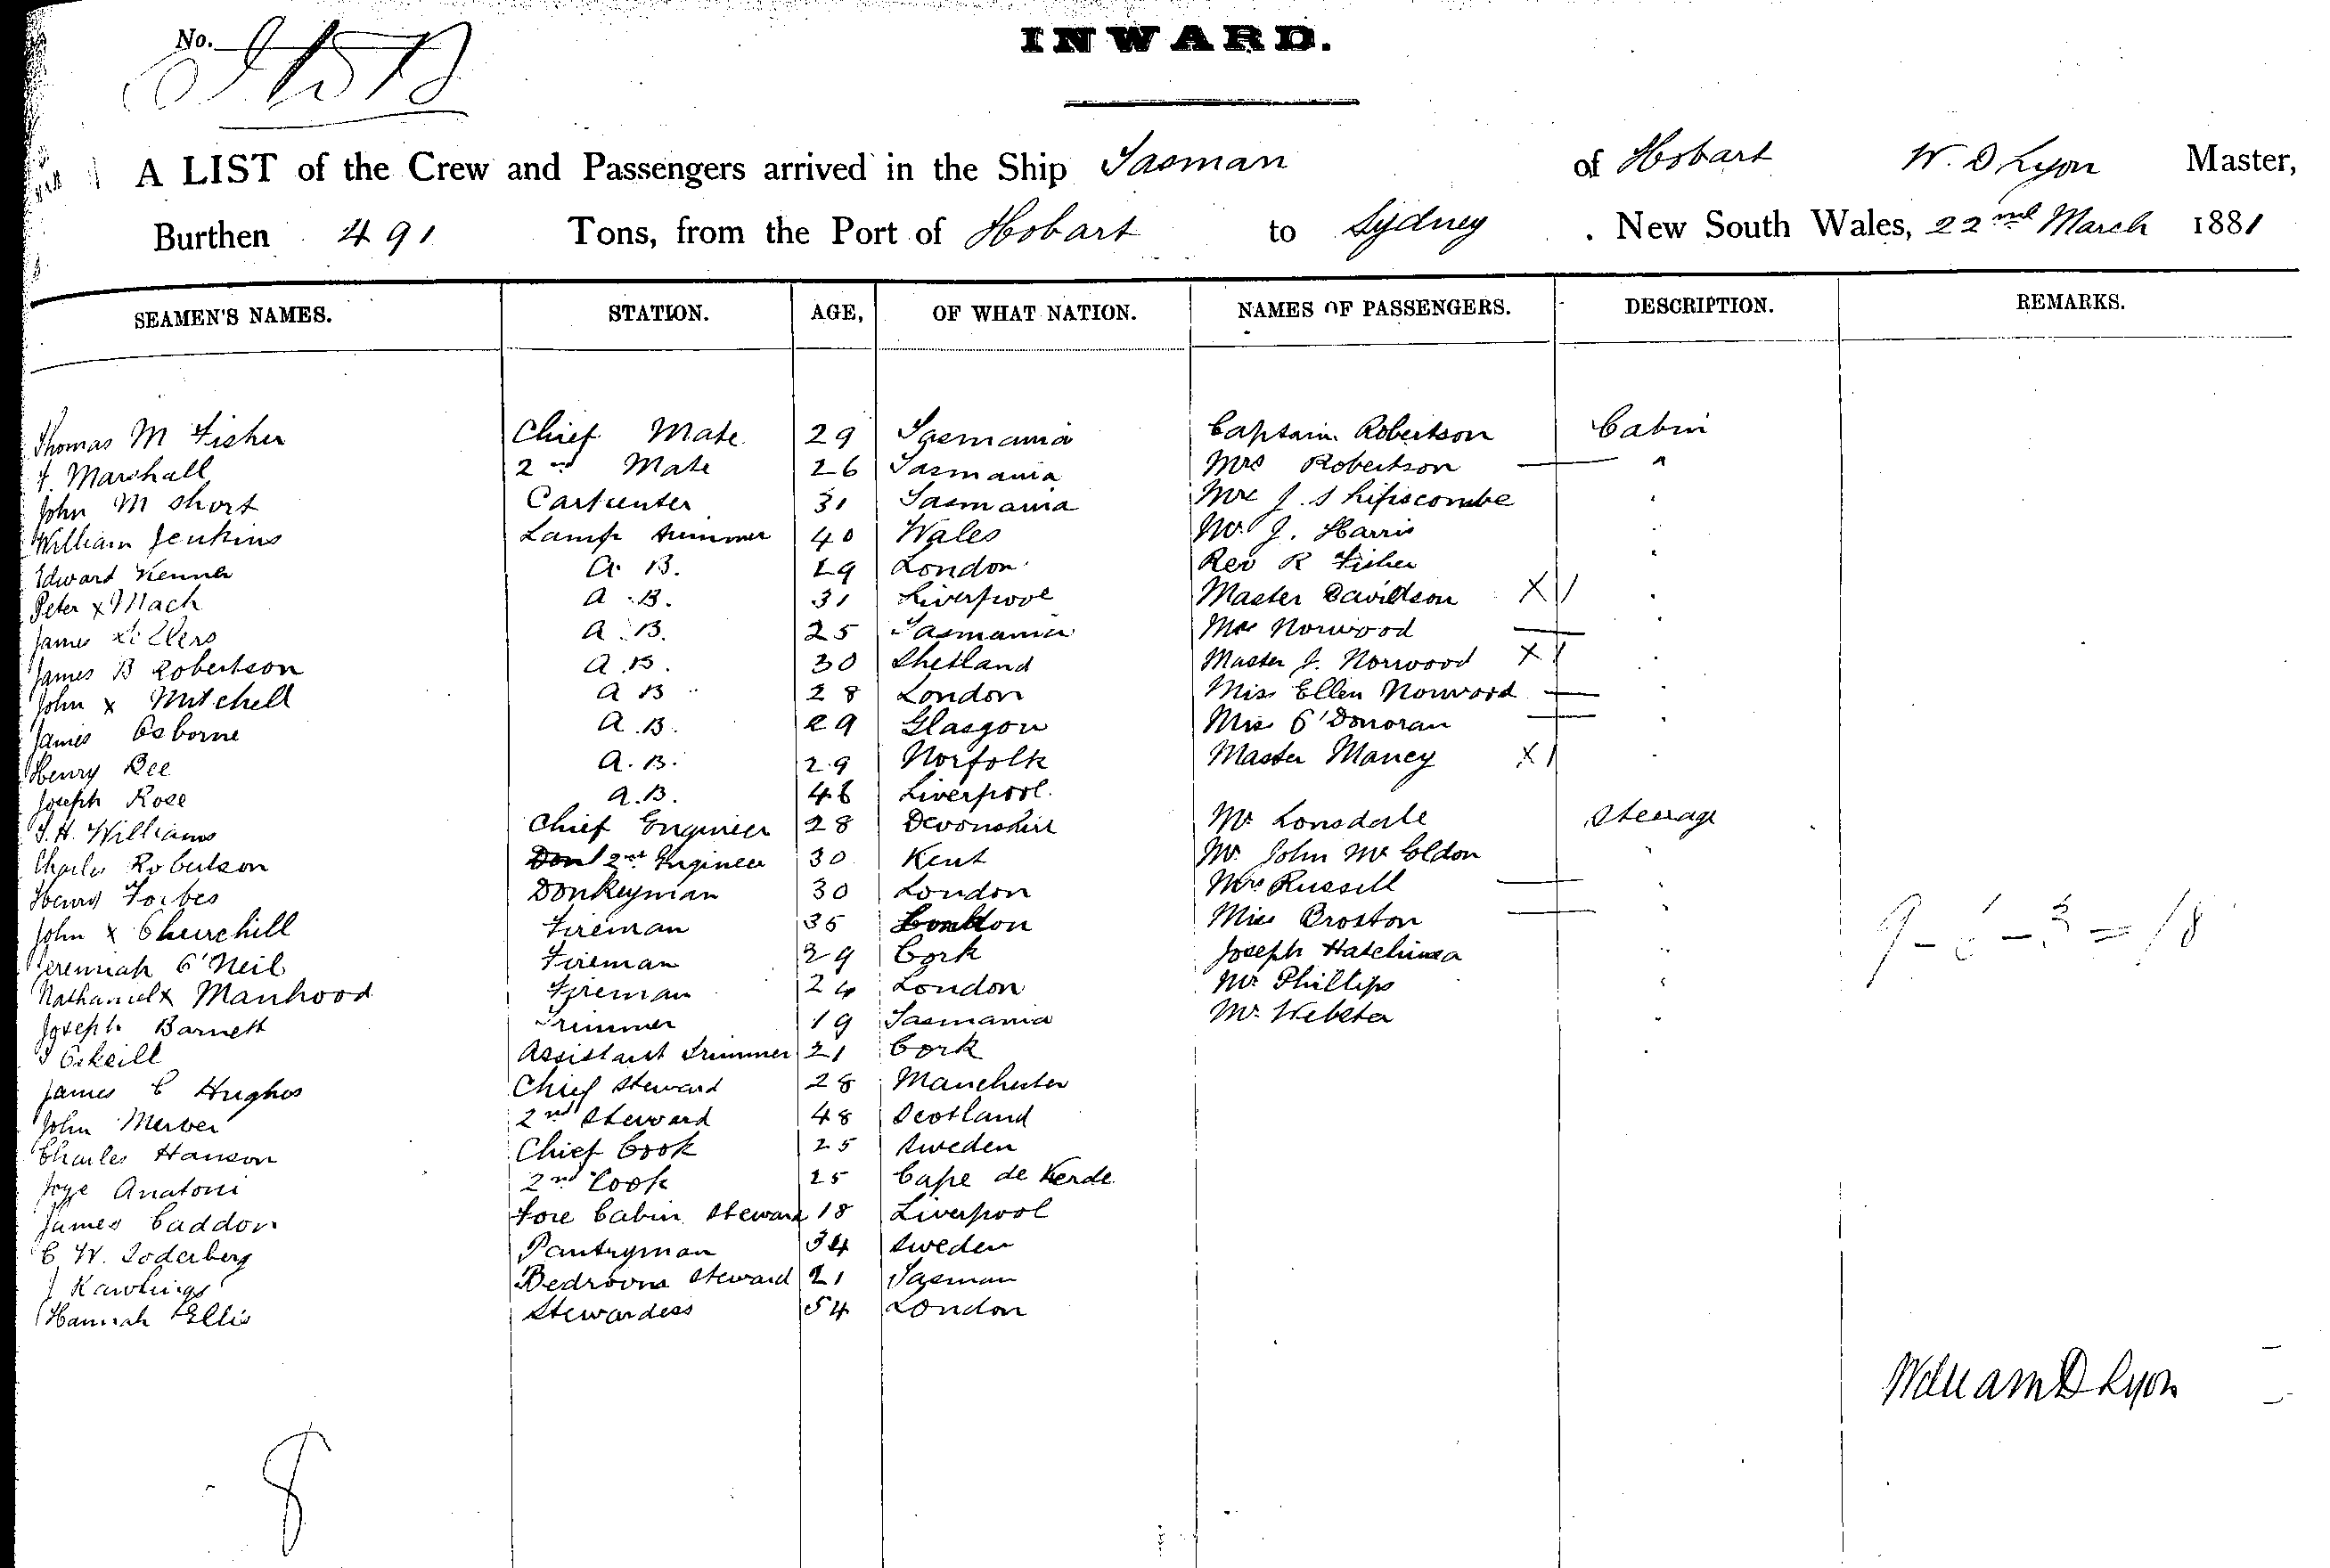 No.
INWARD.
A LIST of the Crew and Passengers arrived in the Ship Tasman of Hobart W. D Lyon Master,
Burthen 491 Tons, from the Port of Hobart to Sydney . New South Wales, 22nd March 1881
SEAMEN'S NAMES. STATION. AGE, OF WHAT NATION. NAMES OF PASSENGERS. DESCRIPTION. REMARKS.
Thomas M Fisher Chief Mate 29 Tasmania Captain Robertson Cabin
Marshall 2nd Mate 26 Tasmania Mrs Robertson "
John M Short Carpenter 31 Tasmania J. S Lipscombe
William Jenkins Lamp trimmer 40 Wales Mr. J. Harris
Edward A. B. 29 London Rev R Fisher
Peter x A. B. 31 Liverpool Master Davidson X
James A. B. 25 Tasmania Mrs Norwood
James B Robertson A. B. 30 Shetland Master J. Norwood X
John x Mitchell A B 28 London Miss Ellen Norwood
James Osborne A. B. 29 Glasgow Miss O'Donovan
Henry Bee A. B. 29 Norfolk Master Maney X
Joseph Rose A. B. Liverpool.
Williams Chief Engineer 28 Devonshire Mr Lonsdale Steerage
Charles Robertson 2nd Engineer 30 Kent Mr. John
Henry Forbes Donkeyman 30 London Mrs Russell
John x Churchill Fireman 35 London Miss Broston
Jeremiah O'Neil Fireman 29 Cork Joseph
Nathaniel x Manhood Fireman 24 London Mr Phillips
Joseph Barnett Trimmer 19 Tasmania Mr. Webster
Assistant Trimmer 21 Cork
James C Hughes Chief Steward 28 Manchester
John 2nd Steward 48 Scotland
Charles Hanson Chief Cook 25 Sweden
Anatoni 2nd Cook 25 Cape de Verde
James Caddon Fore Cabin Steward 18 Liverpool
C W. Soderberg Pantryman 34 Sweden
J Rawlings Bedroom Steward 21 Tasman
Hannah Ellis Stewardess 54 London
William D Lyon
8